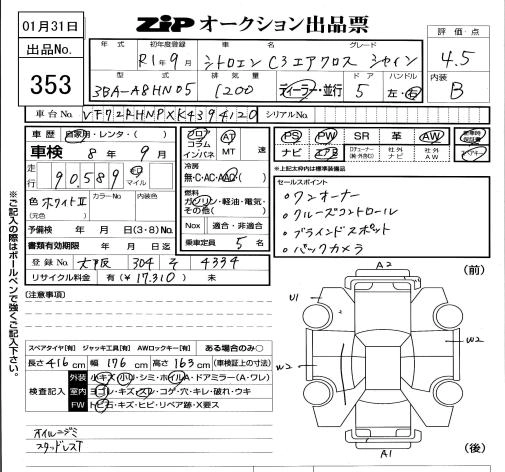 01月31日
ZIP オークション出品票
出品No.
353
評価・点
4.5
内装
B
年式 初年度登録 車名 グレード
R1年9月 シトロエン C3エアクロス シャイン
型式 排気量 ドア ハンドル
3BA-A8HN05 1200 ディーラー・並行 5 左・右
車台No. VF72RHNPXK4394120 シリアルNo.
車歴 自家用・レンタ・( )
車検 8年9月
走行 90,589 km マイル
色 ホワイトII カラーNo. 内装色
(元色)
予備検 年 月 日(3・8)No.
書類有効期限 年 月 日迄
登録No. 大阪 304 そ 4334
リサイクル料金 有(¥17,310) 未
フロア コラム インパネ
AT MT 速
冷房
無・C・AC・AAC・( )
燃料
ガソリン・軽油・電気・その他( )
Nox 適合・非適合
乗車定員 5 名
PS PW SR 革 AW
ナビ エアB Dチューナー(純・外含C) 社外ナビ 社外AW
*上記太枠内は標準装備品
セールスポイント
・ワンオーナー
・クルーズコントロール
・ブラインドスポット
・バックカメラ
※ご記入の際はボールペンで強くご記入下さい。
[注意事項]
スペアタイヤ[有] ジャッキ工具[有] AWロックキー[有] ある場合のみ○
長さ416cm 幅176cm 高さ163cm (車検証上の寸法)
検査記入
外装 小キズ・小U・シミ・ホイルA・ドアミラー(A・ワレ)
室内 ヨゴレ・キズ・スレ・コゲ・穴・キレ・破れ・ウキ
FW トビ石・キズ・ヒビ・リペア跡・X要ス
オイルニヂミ
スタッドレスT
(前)
A2
U1
W2
W2
A1
(後)